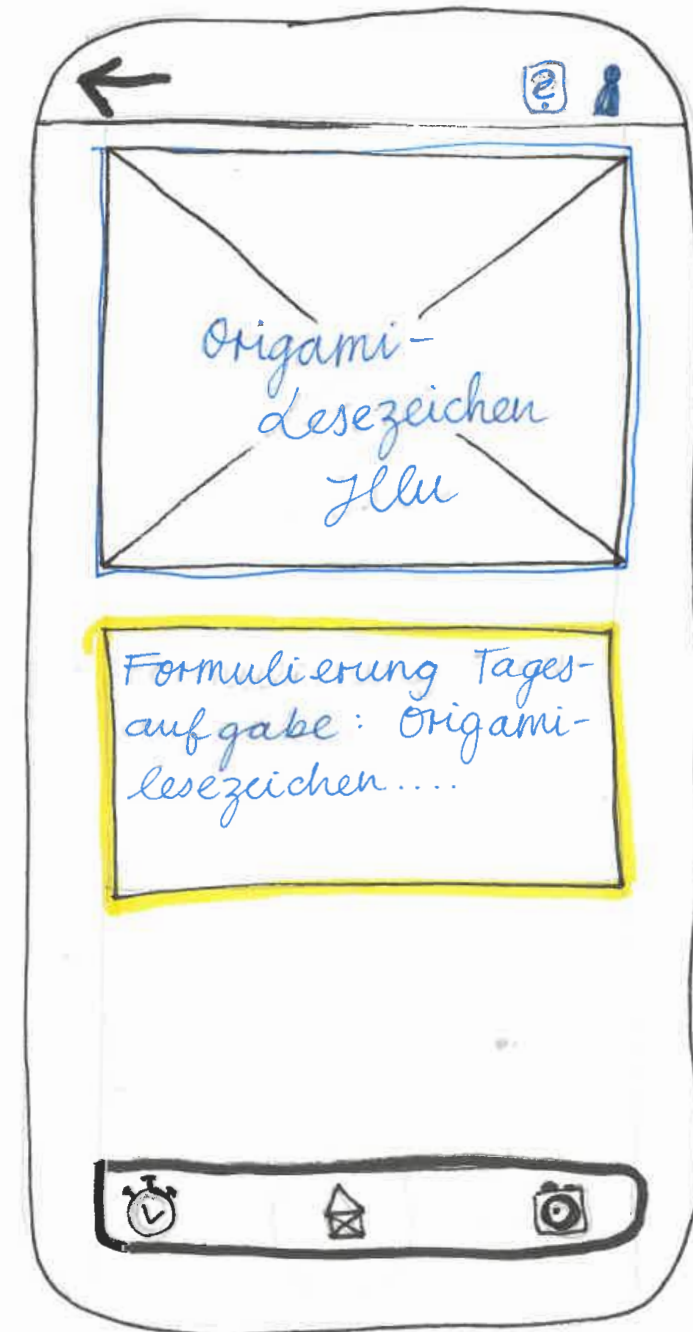 Origami-
Lesezeichen
Illu
Formulierung Tages-
aufgabe: Origami-
lesezeichen....